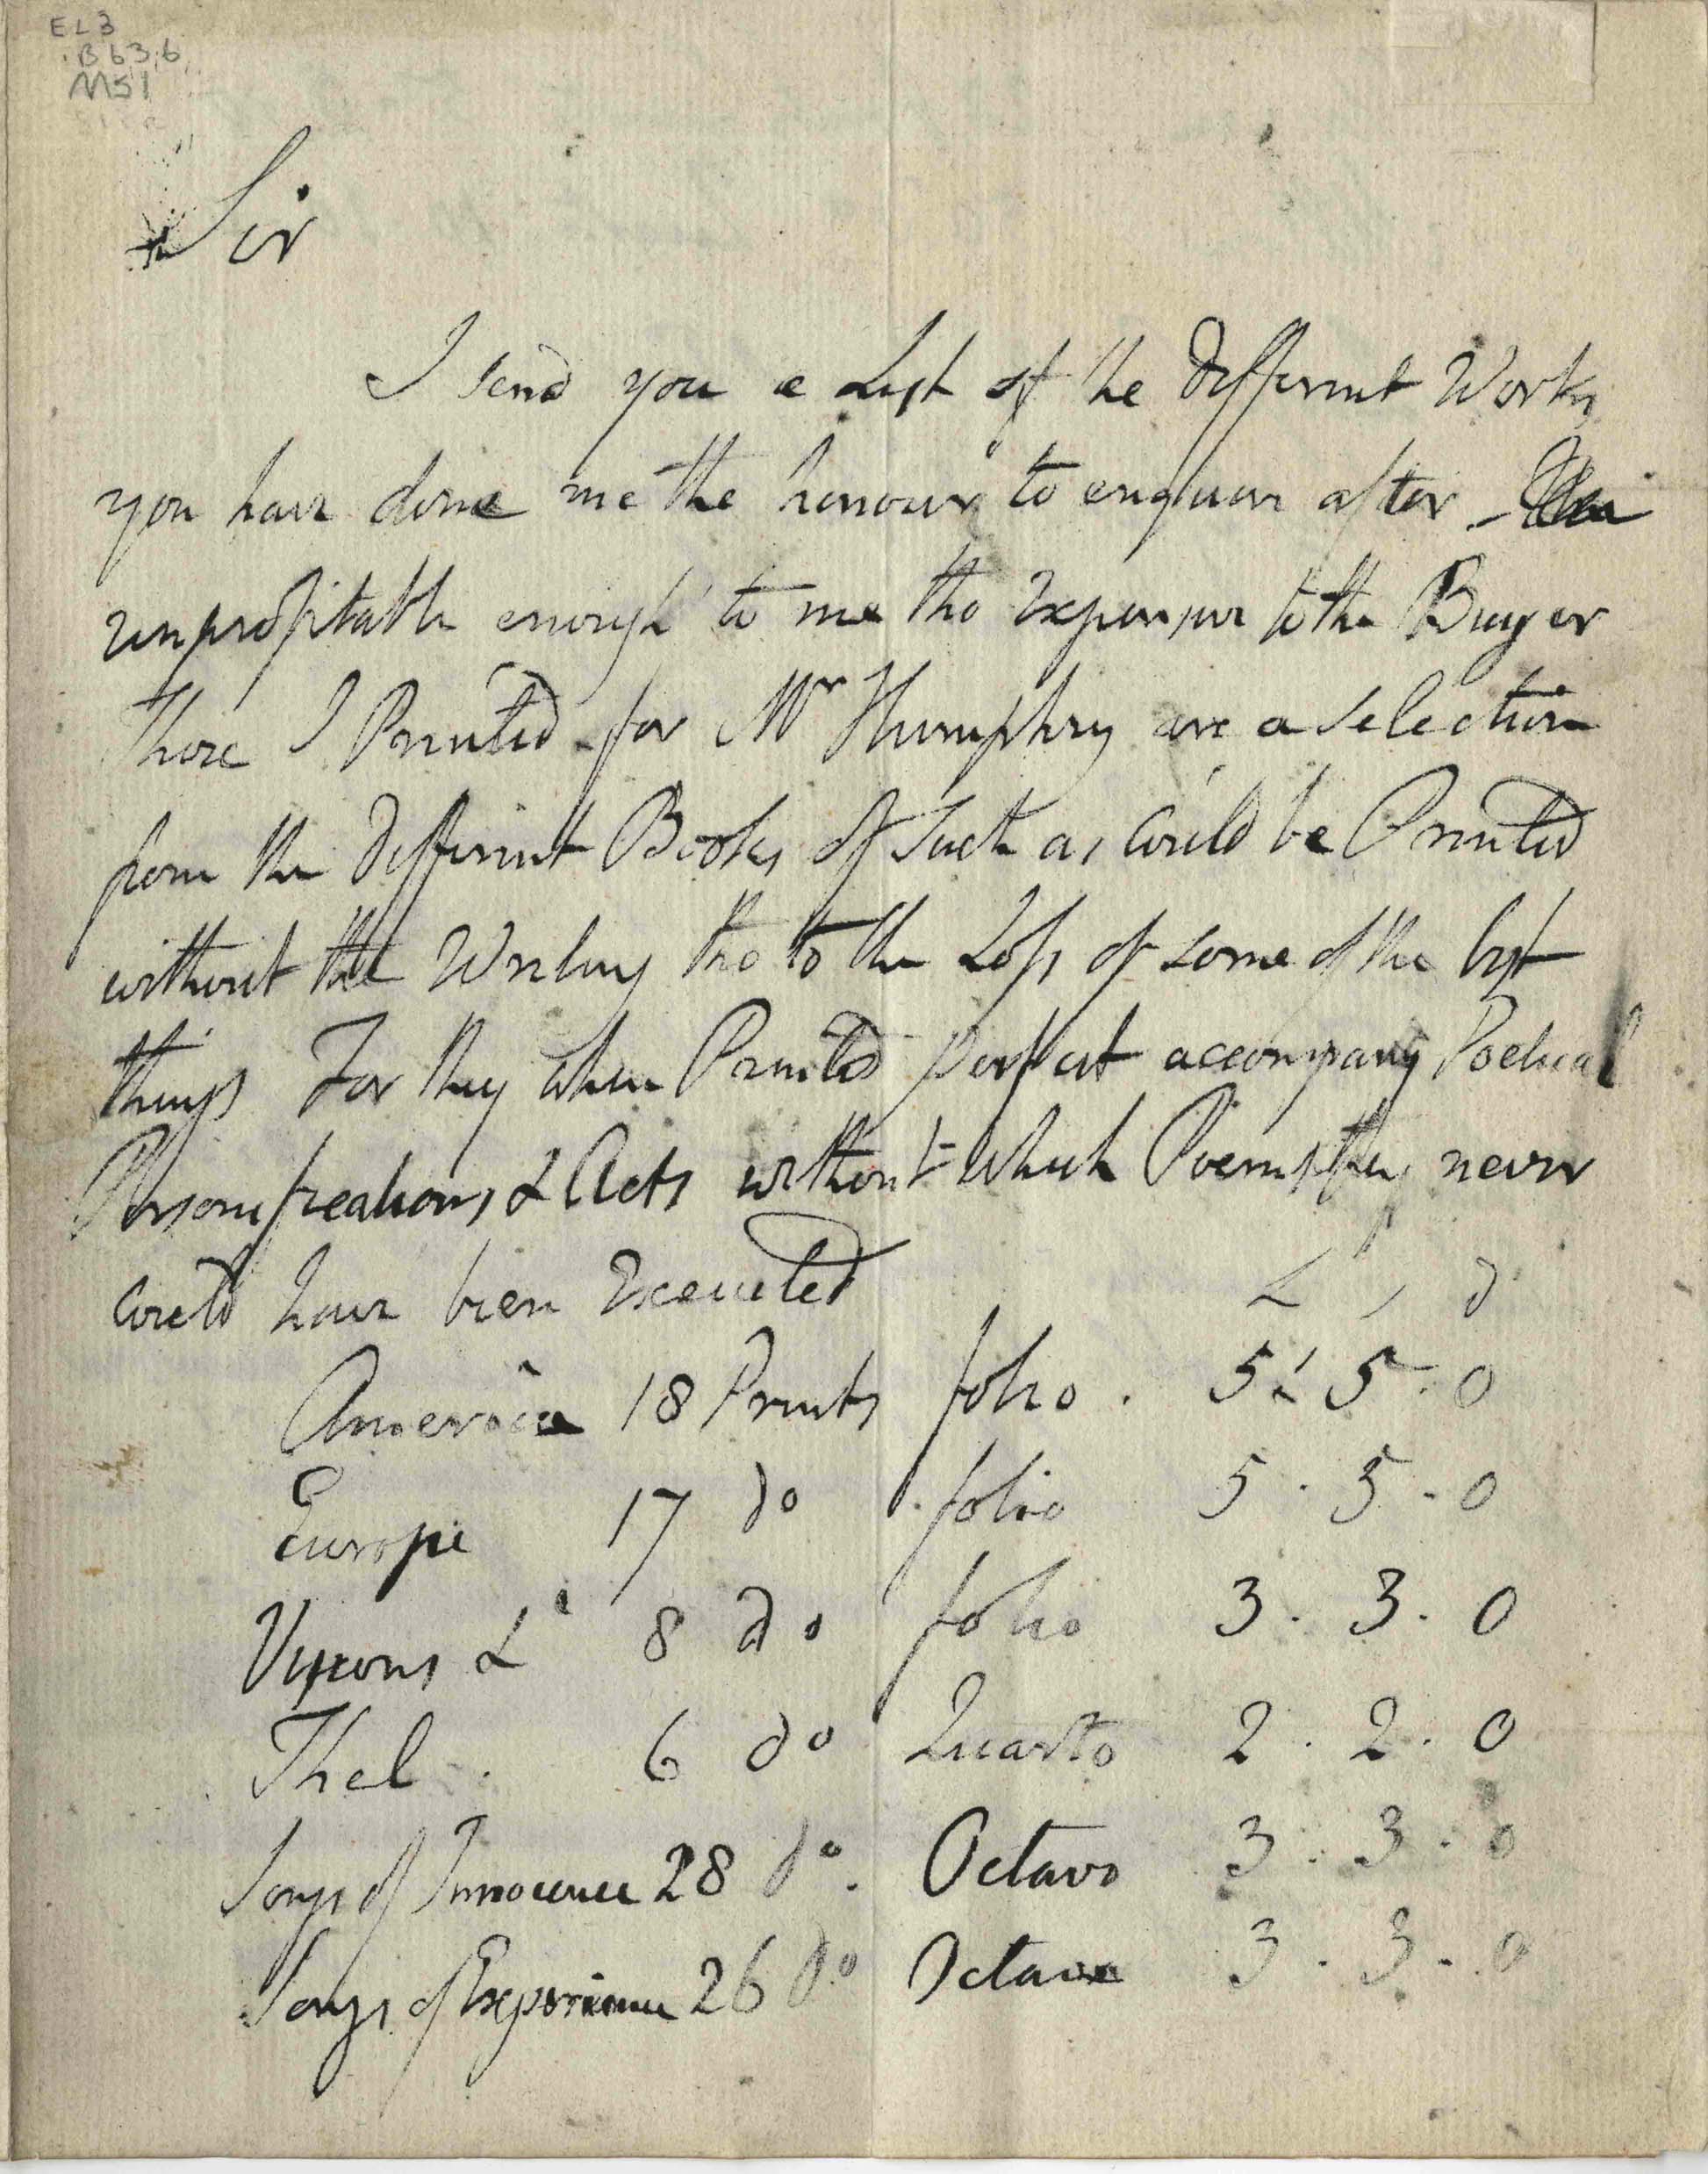 EL3
.B63.6
MS1
Sir
I send you a List of the different Works
you have done me the honour to enquire after
unprofitable enough to me tho Expensive to the Buyer
Those I Printed for Mr Humphry are a selection
from the different Books of such as could be Printed
without the Writing tho to the Loss of some of the best
things For they when Printed perfect accompany Poetical
Personifications & Acts without which Poems they never
could have been Executed
£ s d
America 18 Prints folio . 5 . 5 . 0
Europe 17 do folio 5 . 5 . 0
Visions &c 8 do folio 3 . 3 . 0
Thel . 6 do Quarto 2 . 2 . 0
Songs of Innocence 28 do . Octavo 3 . 3 . 0
Songs of Experience 26 do Octavo 3 . 3 . 0